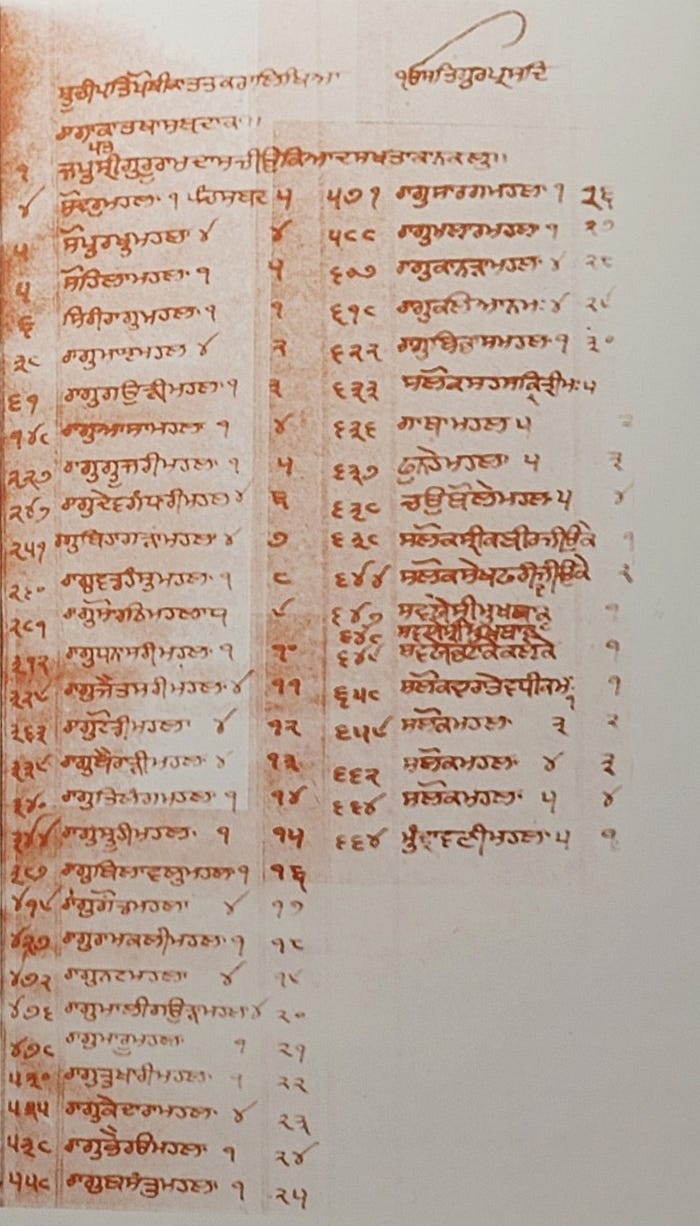 ਸੂਚੀਪਤ੍ਰਿਪੋਥੀਕਾਤਤਕਰਾਲਿਖਿਆ
ਰਾਗਾਕਾਤਥਾਸਬਦਾਕਾ॥
੧ ਜਪੁਸ੍ਰੀਗੁਰੂਰਾਮਦਾਸਜੀਉਕਿਆਦਸਖਤਾਕਾਨਕਲੁ॥
੪ ਸੋਦਰੁਮਹਲਾ ੧ ਪੰਜਸਬਦ ੫
੫ ਸੋਪੁਰਖੁਮਹਲਾ ੪ ੪
੫ ਸੋਹਿਲਾਮਹਲਾ ੧ ੫
੬ ਸਿਰੀਰਾਗੁਮਹਲਾ ੧ ੧
੩੮ ਰਾਗੁਮਾਝਮਹਲਾ ੪ ੨
੬੧ ਰਾਗੁਗਉੜੀਮਹਲਾ ੧ ੩
੧੪੮ ਰਾਗੁਆਸਾਮਹਲਾ ੧ ੪
੨੨੭ ਰਾਗੁਗੂਜਰੀਮਹਲਾ ੧ ੫
੨੪੭ ਰਾਗੁਦੇਵਗੰਧਾਰੀਮਹਲਾ ੪ ੬
੨੫੧ ਰਾਗੁਬਿਹਾਗੜਾਮਹਲਾ ੪ ੭
੨੬੦ ਰਾਗੁਵਡਹੰਸੁਮਹਲਾ ੧ ੮
੨੮੧ ਰਾਗੁਸੋਰਠਿਮਹਲਾ ੯
੩੧੨ ਰਾਗੁਧਨਾਸਰੀਮਹਲਾ ੧ ੧੦
੩੨੯ ਰਾਗੁਜੈਤਸਰੀਮਹਲਾ ੪ ੧੧
ਰਾਗੁਟੋਡੀਮਹਲਾ ੪ ੧੨
੩੩੯ ਰਾਗੁਬੈਰਾੜੀਮਹਲਾ ੪ ੧੩
੩੪੦ ਰਾਗੁਤਿਲੰਗਮਹਲਾ ੧ ੧੪
੩੪੪ ਰਾਗੁਸੂਹੀਮਹਲਾ ੧ ੧੫
੩੮੭ ਰਾਗੁਬਿਲਾਵਲੁਮਹਲਾ ੧ ੧੬
੪੧੯ ਰਾਗੁਗੋਂਡਮਹਲਾ ੪ ੧੭
੪੨੭ ਰਾਗੁਰਾਮਕਲੀਮਹਲਾ ੧ ੧੮
੪੭੨ ਰਾਗੁਨਟਮਹਲਾ ੪ ੧੯
੪੭੬ ਰਾਗੁਮਾਲੀਗਉੜਾਮਹਲਾ ੪ ੨੦
੪੭੮ ਰਾਗੁਮਾਰੂਮਹਲਾ ੧ ੨੧
੫੨੦ ਰਾਗੁਤੁਖਾਰੀਮਹਲਾ ੧ ੨੨
੫੨੫ ਰਾਗੁਕੇਦਾਰਾਮਹਲਾ ੪ ੨੩
੫੨੮ ਰਾਗੁਭੈਰਉਮਹਲਾ ੧ ੨੪
੫੫੮ ਰਾਗੁਬਸੰਤੁਮਹਲਾ ੧ ੨੫
ੴਸਤਿਗੁਰਪ੍ਰਸਾਦਿ
੫੭੧ ਰਾਗੁਸਾਰਗਮਹਲਾ ੧ ੨੬
੫੮੮ ਰਾਗੁਮਲਾਰਮਹਲਾ ੧ ੨੭
੬੦੭ ਰਾਗੁਕਾਨੜਾਮਹਲਾ ੪ ੨੮
੬੧੮ ਰਾਗੁਕਲੀਆਨਮਃ ੪ ੨੯
੬੨੨ ਰਾਗੁਬਿਭਾਸਮਹਲਾ ੧ ੩੦
੬੩੩ ਸਲੋਕਸਹਸਕ੍ਰਿਤੀਮਃ ੫
੬੩੬ ਗਾਥਾਮਹਲਾ ੫ ੨
੬੩੭ ਫੁਨਹੇਮਹਲਾ ੫ ੩
੬੩੮ ਚਉਬੋਲੇਮਹਲਾ ੫ ੪
੬੩੮ ਸਲੋਕਸ੍ਰੀਕਬੀਰਜੀਉਕੇ ੧
੬੪੪ ਸਲੋਕਸੇਖਫਰੀਦਜੀਉਕੇ ੨
੬੪੭ ਸਵਯੇਸ੍ਰੀਮੁਖਬਾਕ ੧
੬੪੮ ਸਵਯੇਸ੍ਰੀਮੁਖਬਾਕ
੬੪੯ ੧
੬੫੮ ਸਲੋਕਵਾਰਾਤੇਵਧੀਕਮਃ ੧ ੧
੬੫੯ ਸਲੋਕਮਹਲਾ ੩ ੨
੬੬੨ ਸਲੋਕਮਹਲਾ ੪ ੩
੬੬੪ ਸਲੋਕਮਹਲਾ ੫ ੪
੬੬੪ ਮੁੰਦਾਵਣੀਮਹਲਾ ੫ ੧